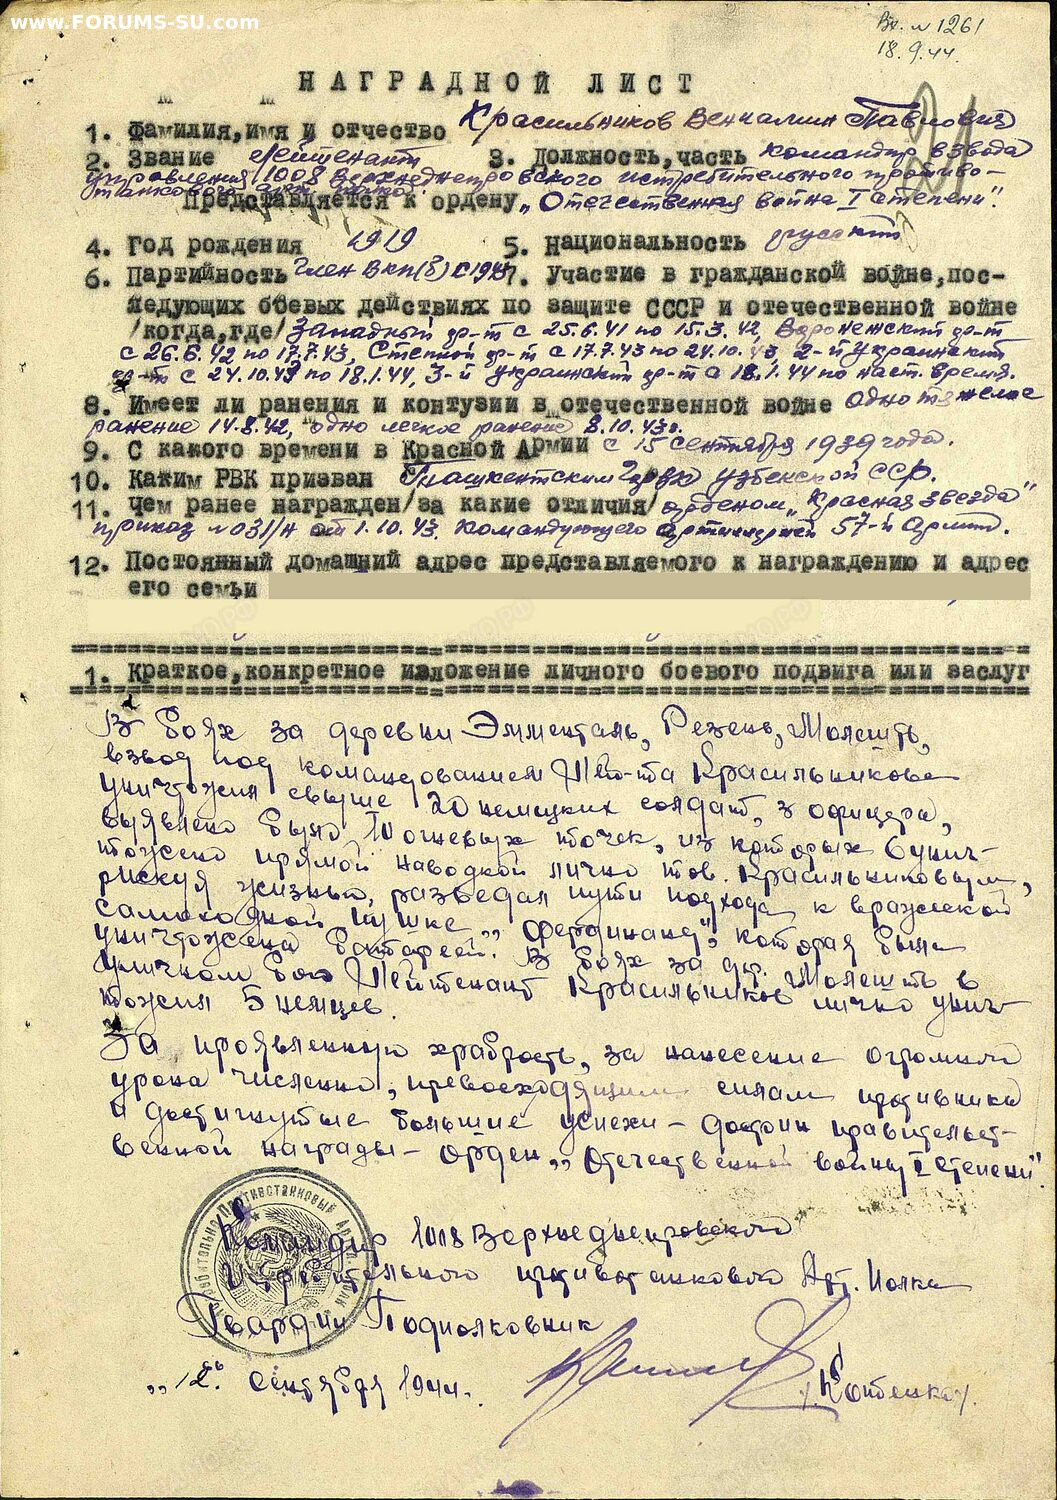 www.FORUMS-SU.com
Вх. № 1261
18.9.44.
21
НАГРАДНОЙ ЛИСТ
1. Фамилия,имя и отчество Красильников Вениамин Павлович
2. Звание лейтенант 3. Должность,часть командир взвода
управления 1008 Верхнеднепровского истребительного противо-
танкового арт. полка.
Представляется к ордену „Отечественная война I степени".
4. Год рождения 1919 5. Национальность русский
6. Партийность член ВКП(б) с 7. Участие в гражданской войне,пос-
ледующих боевых действиях по защите СССР и отечественной войне
/когда,где/ Западный фр-т с 25.6.41 по 15.3.42, Воронежский фр-т
с 26.6.42 по 17.7.43, Степной фр-т с 17.7.43 по 24.10.43, 2-й Украинский
фр-т с 24.10.43 по 18.1.44, 3-й Украинский фр-т с 18.1.44 по наст. время.
8. Имеет ли ранения и контузии в отечественной войне одно тяжелое
ранение 14.8.42, одно легкое ранение 8.10.43г.
9. С какого времени в Красной Армии с 15 сентября 1939 года.
10. Каким РВК призван Ташкентским Узбекской ССР.
11. Чем ранее награжден/за какие отличия/ орденом „Красная звезда"
приказ № 031/н от 1.10.43. Командующего Артиллерией 57-й Армии.
12. Постоянный домашний адрес представляемого к награждению и адрес
его семьи
1. Краткое,конкретное изложение личного боевого подвига или заслуг
В боях за деревни Эмменталь, Резень, Молешть,
взвод под командованием Лей-та Красильникова
уничтожил свыше 20 немецких солдат, 3 офицера,
выявлено было 10 огневых точек, из которых 6 унич-
тожено прямой наводкой лично тов. Красильниковым,
рискуя жизнью, разведал пути подхода к вражеской
самоходной пушке „Фердинанд", которая была
уничтожена батареей. В боях за др. Молешть в
уличном бою Лейтенант Красильников лично унич-
тожил 5 немцев.
За проявленную храбрость, за нанесение огромного
урона численно, превосходящим силам противника
и достигнутые большие успехи – достоин правительст-
венной награды – орден „Отечественной войны I степени".
Командир 1008 Верхнеднепровского
Истребительного противотанкового Арт. Полка
Гвардии Подполковник
„12" сентября 1944г. /Котенко/.